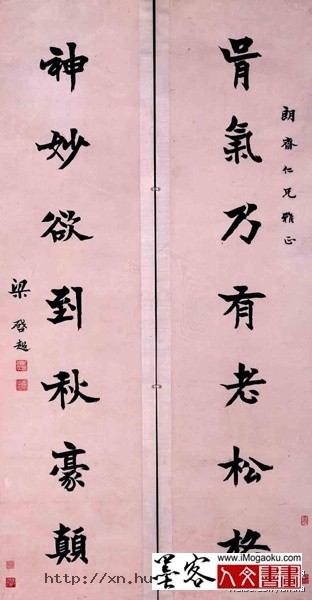 朗齋仁兄雅正
骨氣乃有老松格
神妙欲到秋豪顛
梁啓超
http://xn.hu
墨客
www.iMogaoku.com
人文書畫